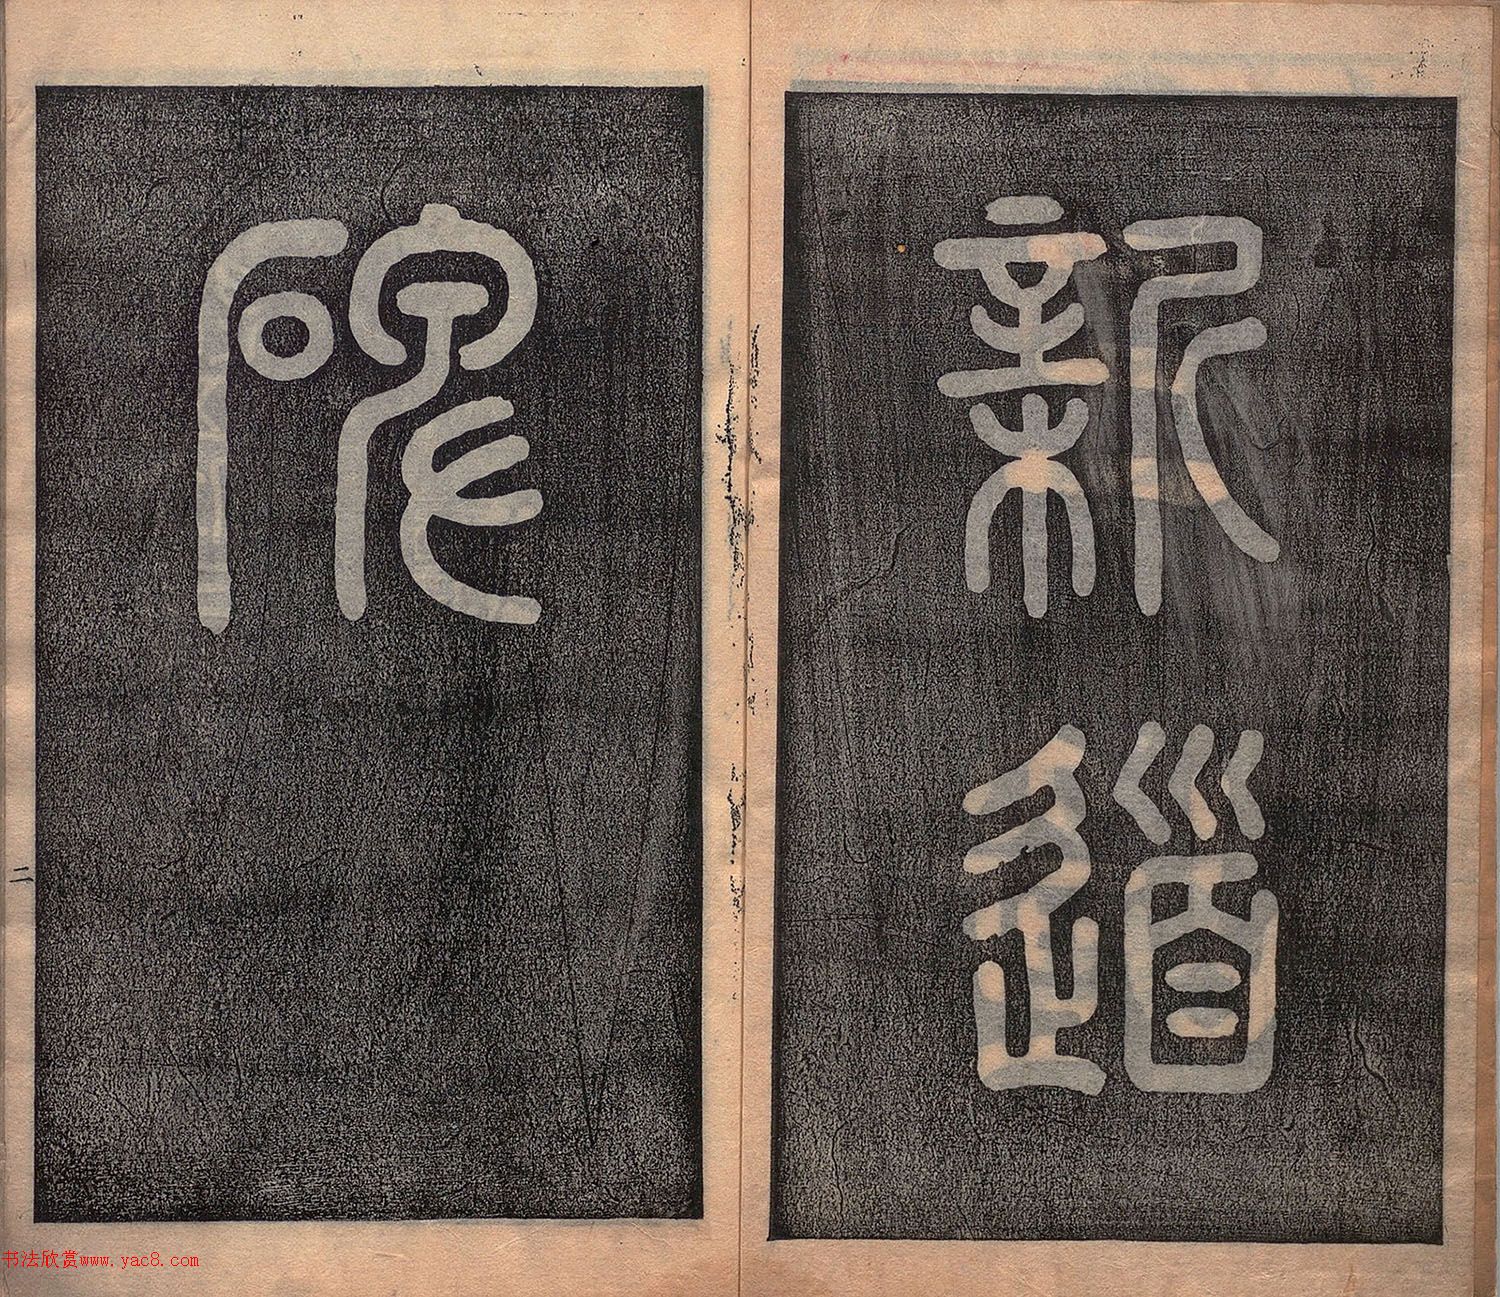 新道
二
书法欣赏www.yac8.com